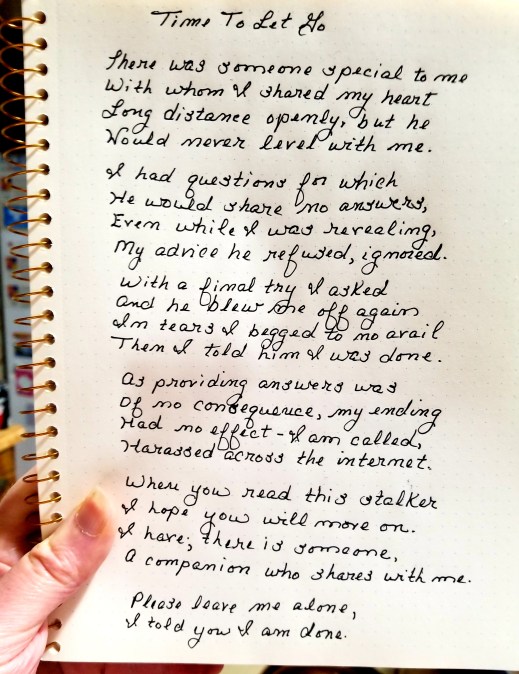 Time To Let Go
There was someone special to me
With whom I shared my heart
Long distance openly, but he
Would never level with me.
I had questions for which
He would share no answers,
Even while I was revealing,
My advice he refused, ignored.
With a final try I asked
And he blew me off again
In tears I begged to no avail
Then I told him I was done.
As providing answers was
Of no consequence, my ending
Had no effect - I am called,
Harassed across the internet.
When you read this stalker
I hope you will move on.
I have; there is someone,
A companion who shares with me.
Please leave me alone,
I told you I am done.